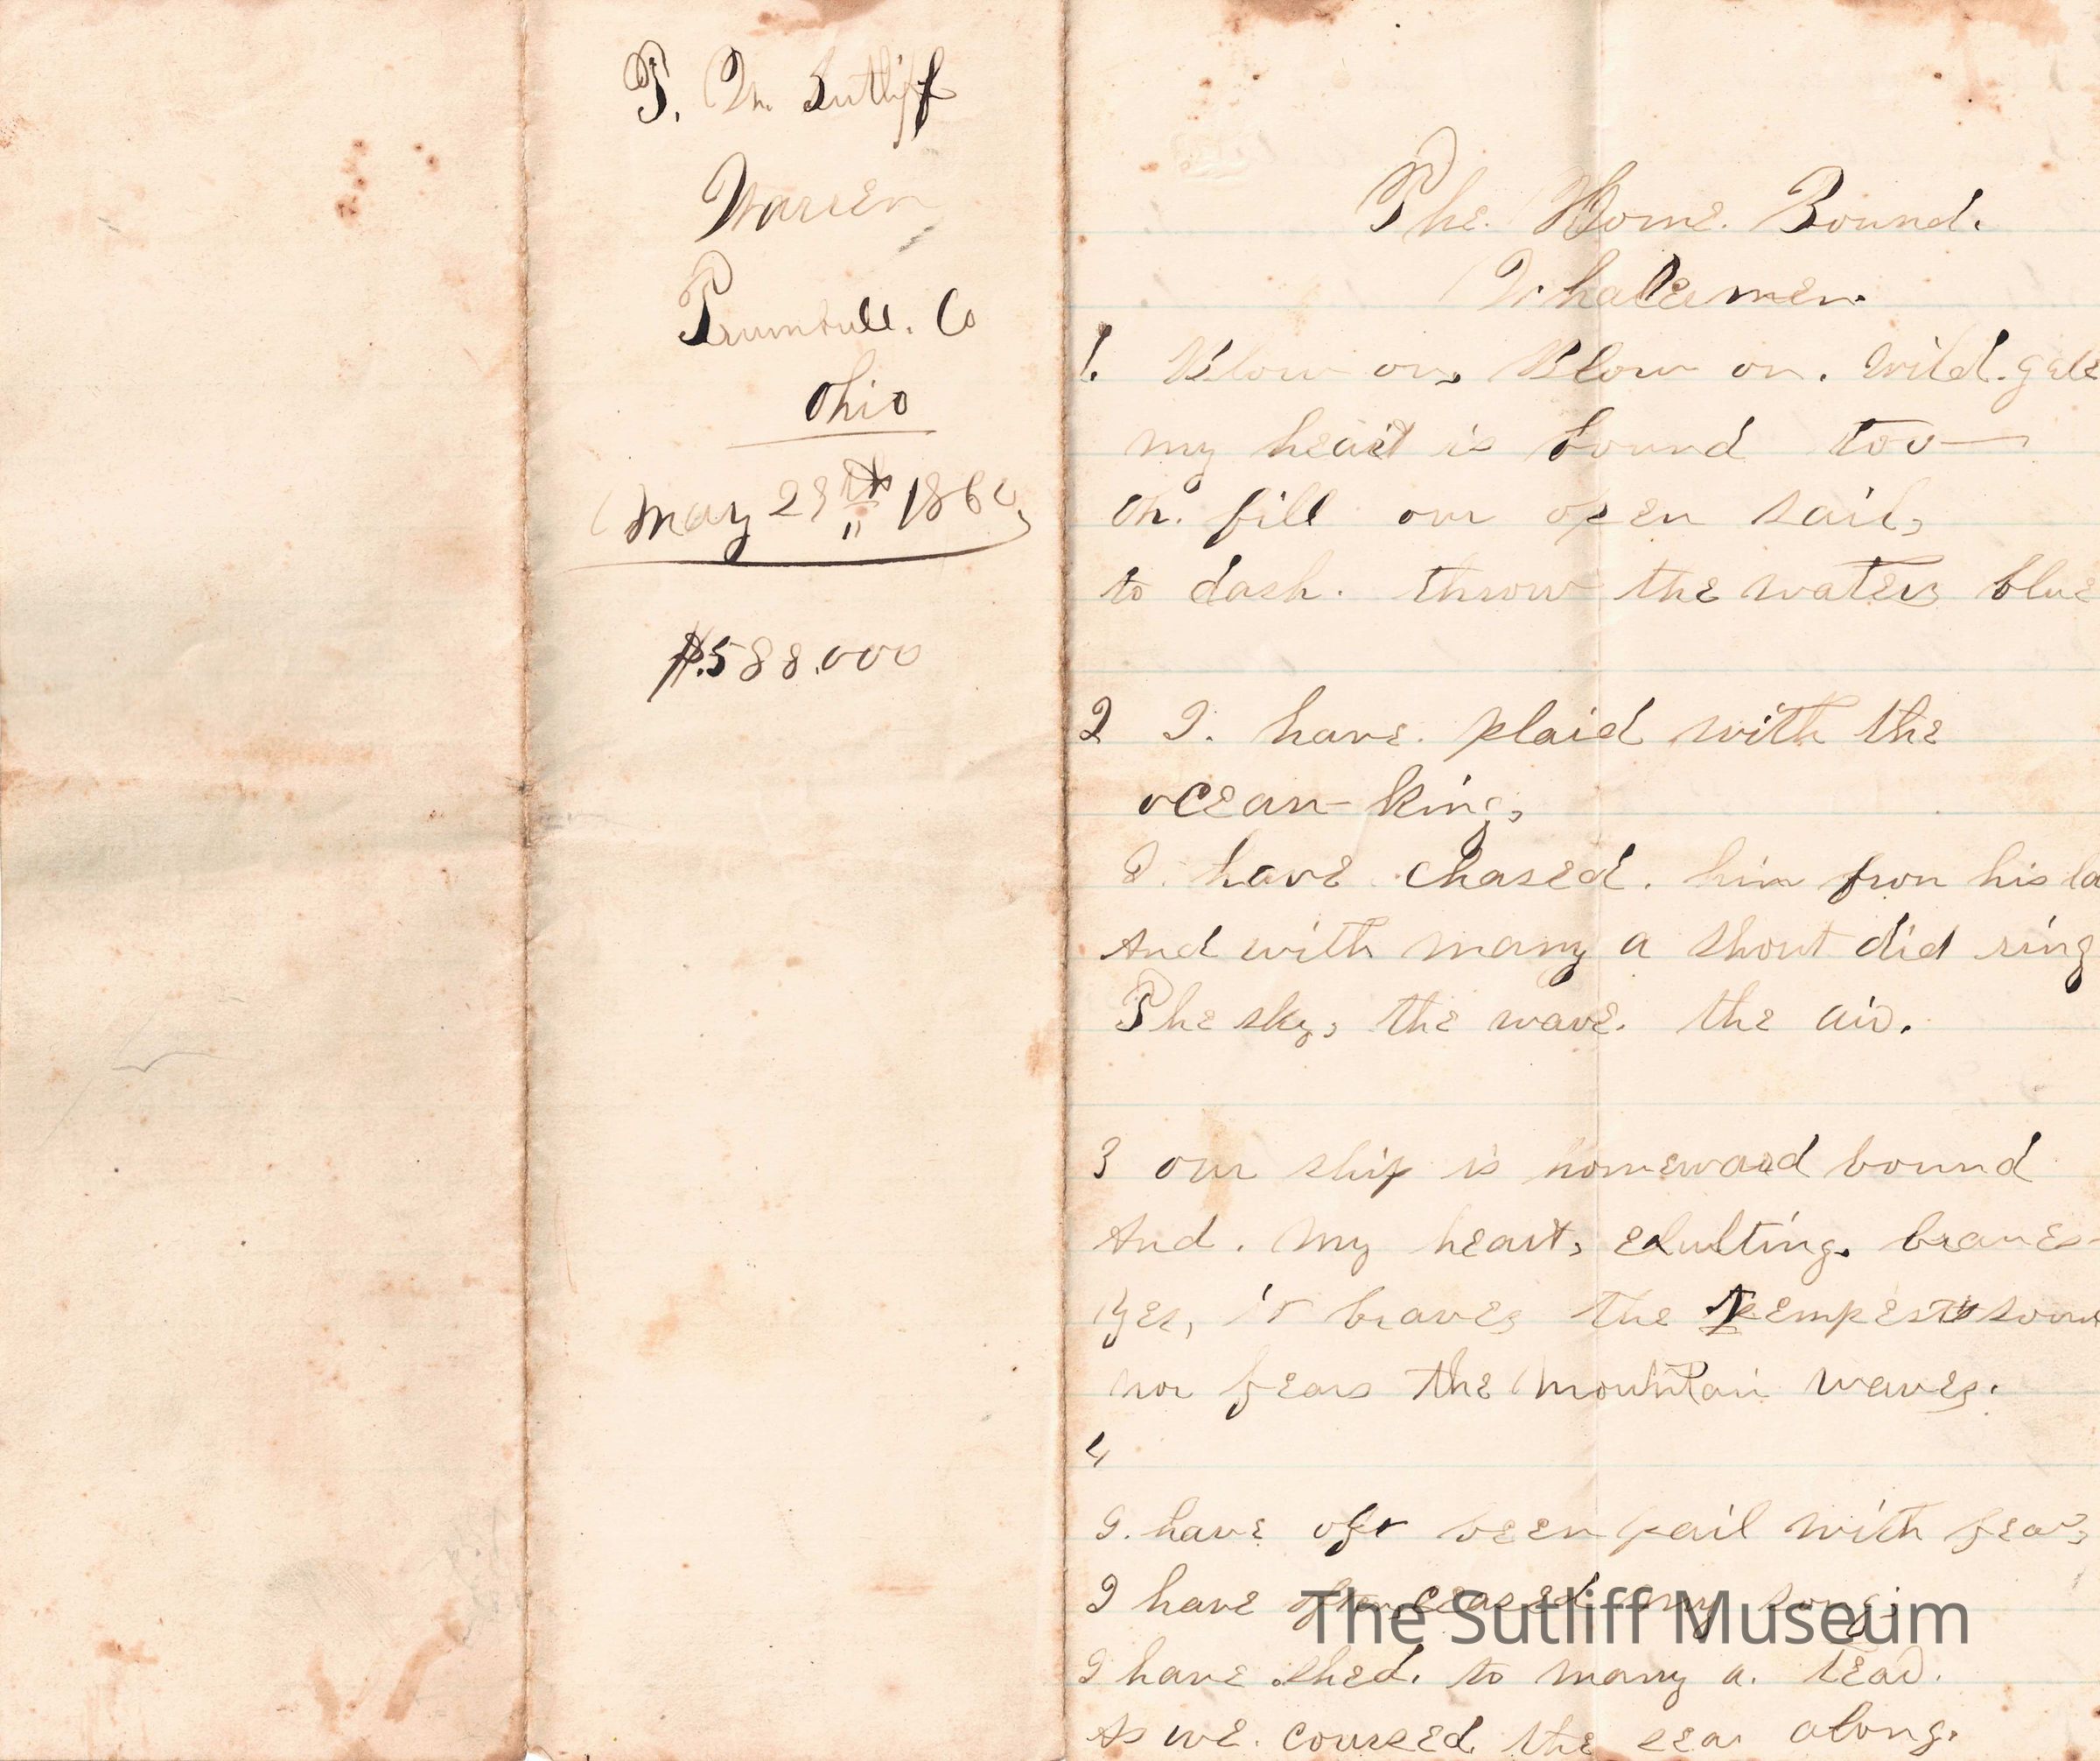 T. M. Sutliff
Warren
Trumbull. Co
Ohio
May 23th 1860,
$.588.000
The. Home. Bound.
Whalesmen.
1. Blow on, Blow on. Wild. gale
my heart is bound too
Oh. fill our open sail,
to dash. throw the waters blue
2 I. have. plaid with the
ocean king,
I. have chased. him fron his la
And with many a shout did ring
The sky, the wave. the air.
3 our ship is homeward bound
And. my heart, exulting. braves
yes, it braves the tempests soun
nor fears the mountain waves.
4
I. have oft been pail with fear,
I have often ceased my song,
I have shed. to many a. tear.
As we. coursed the sea along.
The Sutliff Museum